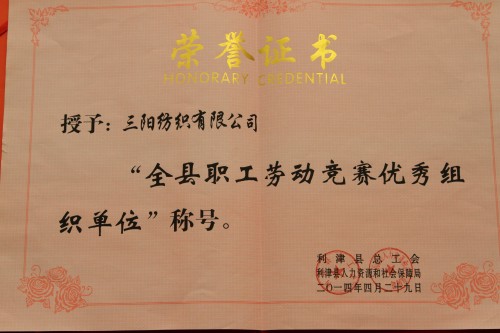 荣誉证书
HONORARY CREDENTIAL
授予：三阳纺织有限公司
“全县职工劳动竞赛优秀组
织单位”称号。
利津县总工会
利津县人力资源和社会保障局
二〇一四年四月二十九日